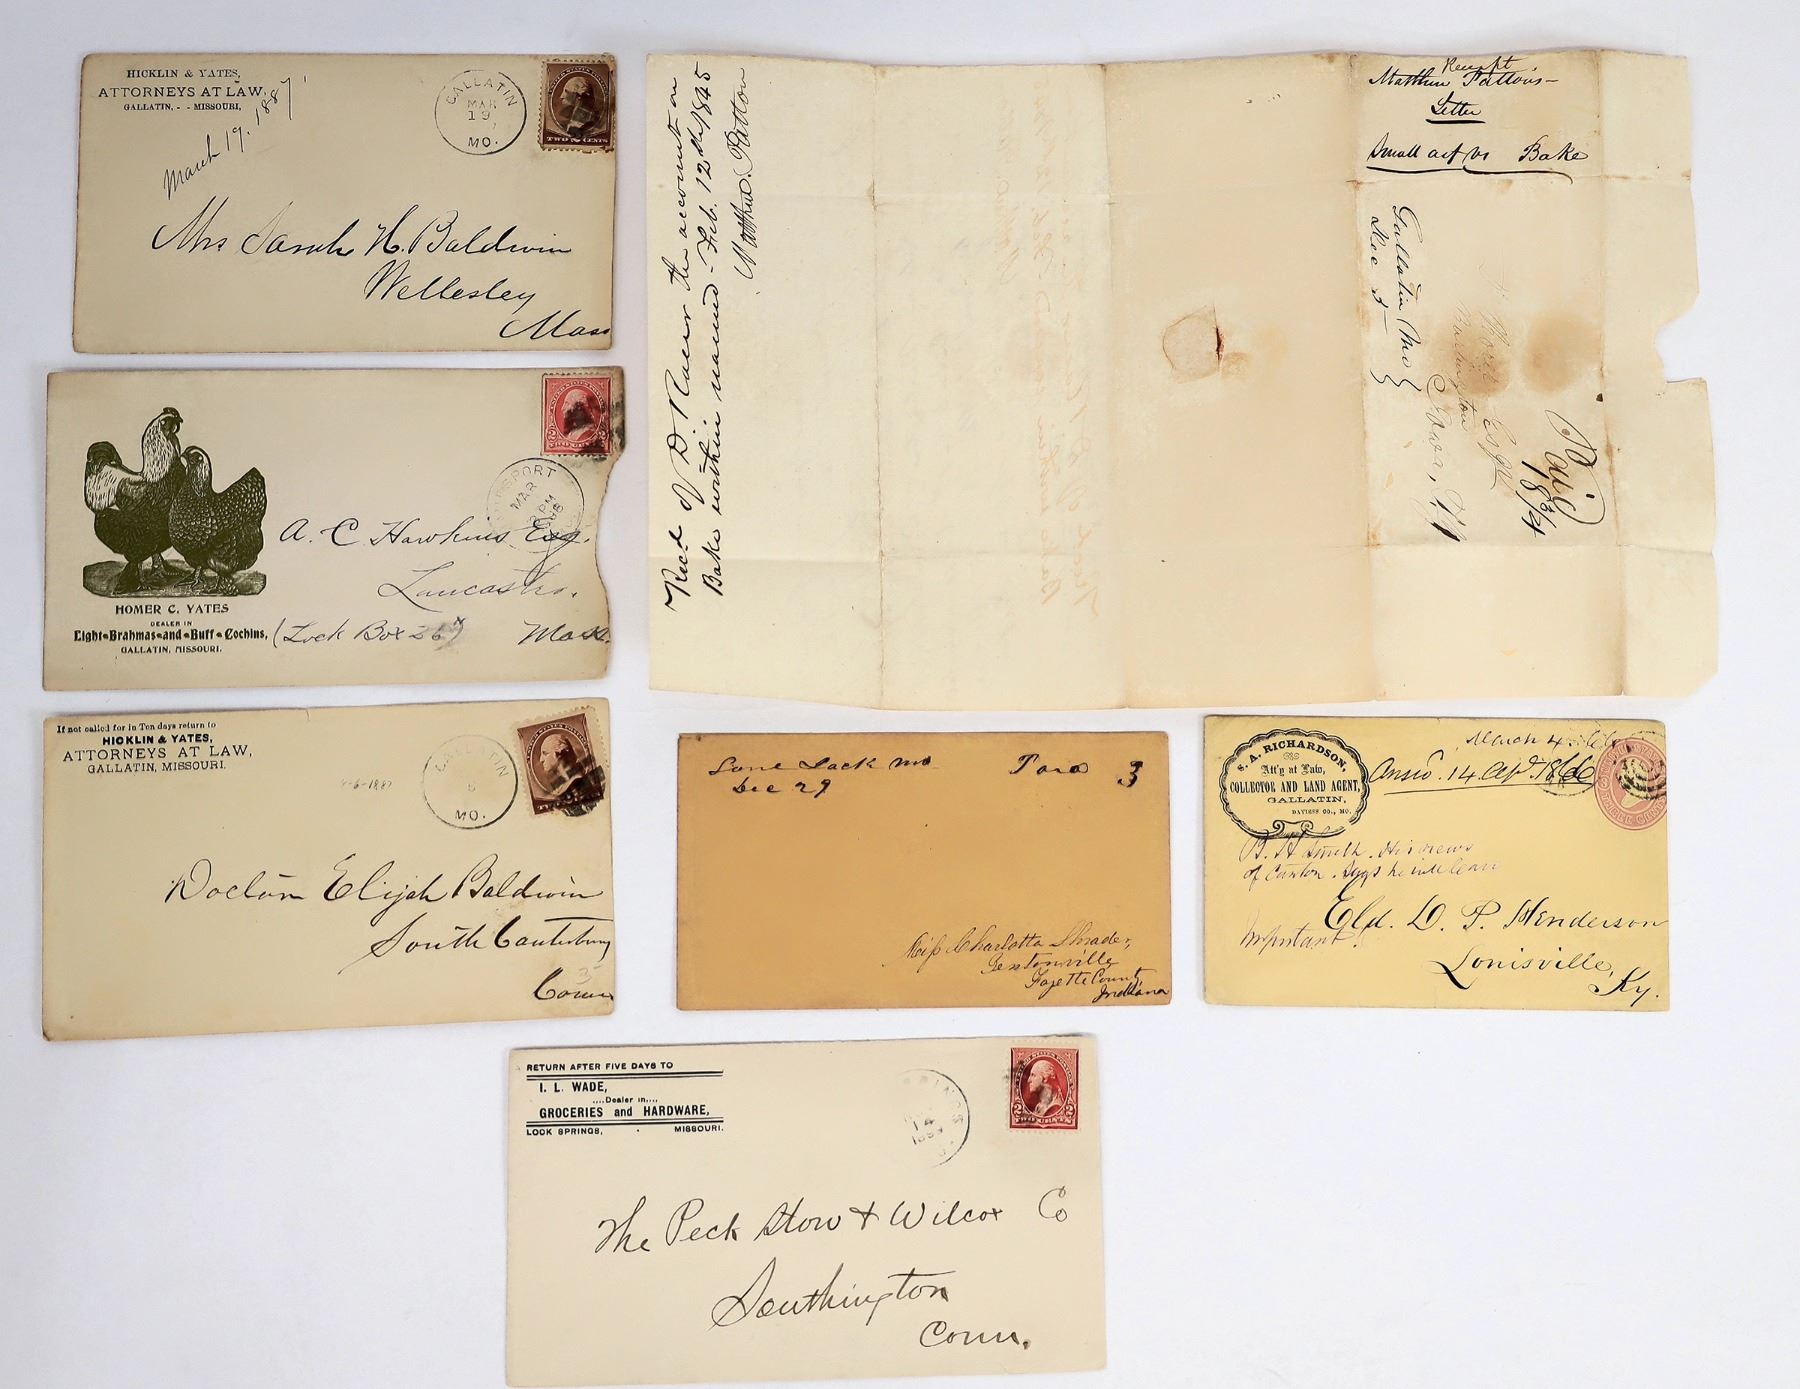 HICKLIN & YATES,
ATTORNEYS AT LAW,
GALLATIN, - - MISSOURI,
March 19. 1887
GALLATIN
MAR
19
MO.
TWO CENTS
Mrs Sarah H. Baldwin
Wellesley
Mass
HOMER C. YATES
DEALER IN
Light-Brahmas-and-Buff-Cochins,
GALLATIN, MISSOURI.
2 2
TWO CENTS
MAR
PM
A. C. Hawkins Esq.
Lancaster.
(Lock Box 26
Mass.
If not called for in Ten days return to
HICKLIN & YATES,
ATTORNEYS AT LAW,
GALLATIN, MISSOURI.
GALLATIN
MO.
Doctor Elijah Baldwin
South Canterbury
Conn
Rec'd of D. Raer the account on
Bake within named - Feb. 12th 1845
Matthew Patton
Receipt
Matthew Patton's
Letter
Small act vs Bake
Gallatin Mo
Dec 5
Paid
18 3/4
Esqr
Washington
Lone Jack Mo
Dec 29
Paid 3
Miss Charlotte Shrader,
Bentonville
Fayette County
Indiana
S. A. RICHARDSON,
Att'y at Law,
COLLECTOR AND LAND AGENT,
GALLATIN,
DAVIESS CO., MO.
March 4. 66
Answd. 14 Apl. 1866
B. H Smith. His views
of Canton. Says he will leave
Important
Eld. D. P. Henderson
Louisville,
Ky.
RETURN AFTER FIVE DAYS TO
I. L. WADE,
....Dealer in....
GROCERIES and HARDWARE,
LOCK SPRINGS, MISSOURI.
14
2 2
TWO CENTS
The Peck Stow & Wilcox Co
Southington
Conn.